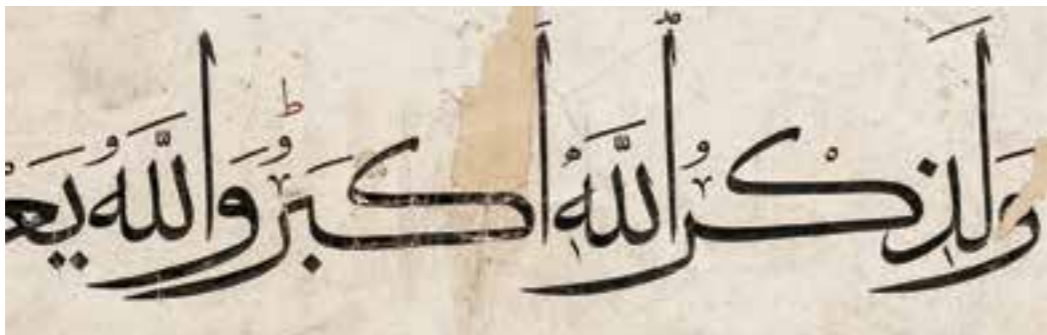 وَلَذِكْرُ ٱللَّهِ أَكْبَرُ ۗ وَاللَّهُ يَعْ